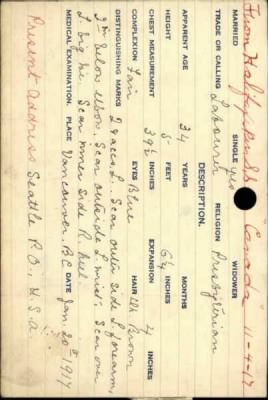 From Halifax Canada 11-4-17
MARRIED SINGLE yes WIDOWER
TRADE OR CALLING Labourer RELIGION Presbyterian
DESCRIPTION.
APPARENT AGE 34 YEARS MONTHS
HEIGHT 5 FEET 6½ INCHES
CHEST MEASUREMENT 39½ INCHES EXPANSION 4 INCHES
COMPLEXION Fair EYES Blue HAIR Lt. Brown
DISTINGUISHING MARKS 2 vacc. L. Scar outer side L. forearm,
2in below elbow. Scar outside L wrist. Scar over
L big toe. Scar inner side R. heel.
MEDICAL EXAMINATION. PLACE Vancouver, BC DATE Jan 20th 1917
Present Address Seattle P.O., U.S.A.